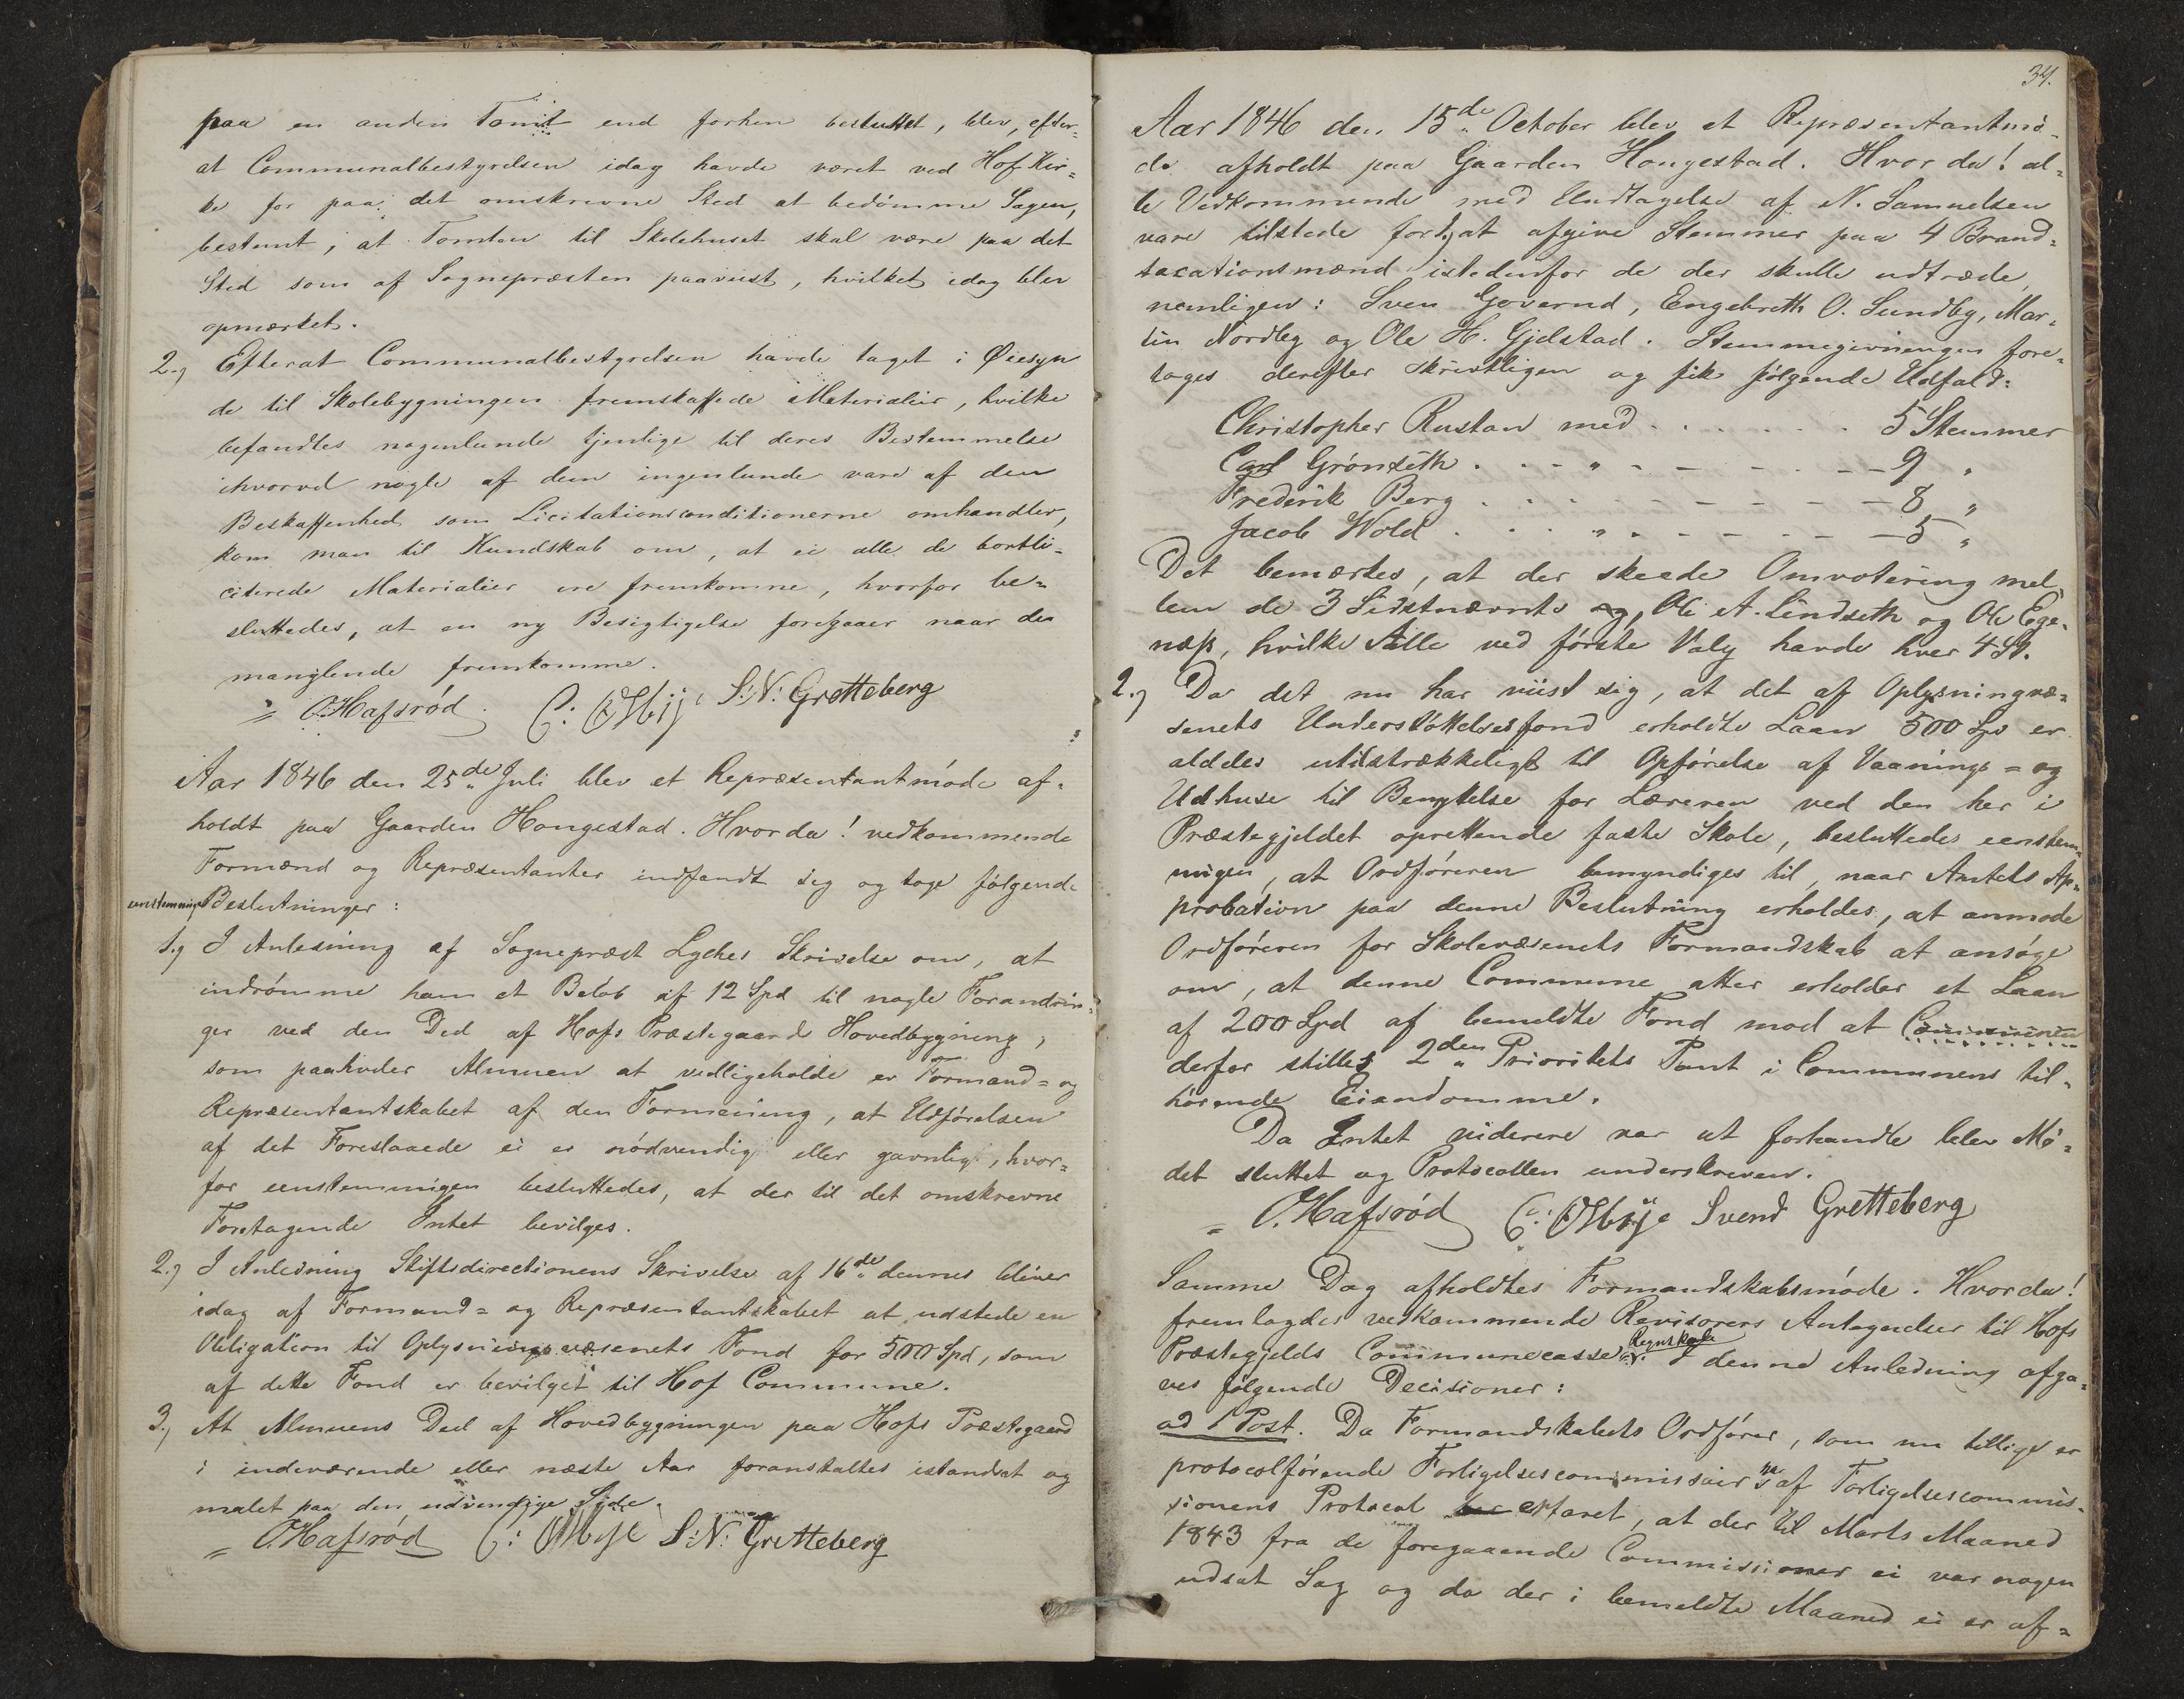 paa en anden Tomt end forhen besluttet, blev, efter=
at Communalbestyrelsen idag havde været ved Hof Kir=
ke for paa det omskrevne Sted at bedømme Sagen,
bestemt, at Tomten til Skolehuset skal være paa det
Sted som af Sognepræsten paaviist, hvilket idag blev
opmærket.
2.) Efterat Communalbestyrelsen havde taget i Øiesyn
de til Skolebygningen fremskaffede Materialier, hvilke
befandtes nogenlunde tjenlige til deres Bestemmelse
ihvorvel nogle af dem ingenlunde vare af den
Beskaffenhed som Licitationsconditionerne omhandler,
kom man til Kundskab om, at ei alle de bortli=
citerede Materialier ere fremkomne, hvorfor be=
sluttedes, at en ny Besigtigelse foregaaer naar de
manglende fremkomme.
O. Hafsrød C: S: N: Gretteberg
Aar 1846 den 25de Juli blev et Repræsentantmøde af=
holdt paa Gaarden Hongestad. Hvor da! vedkommende
Formænd og Repræsentanter indfandt sig og toge følgende
eenstemmige Beslutninger:
1.) I Anledning af Sognepræst Lyches Skrivelse om, at
indrømme ham et Beløb af 12 Spd til nogle Forandrin=
ger ved den Deel af Hofs Præstegaards Hovedbygning,
som paahviler Almuen at vedligeholde er Formand= og
Repræsentantskabet af den Formening, at Udførelsen
af det Foreslaaede ei er nødvendig eller gavnlig, hvor=
for eenstemmigen besluttedes, at der til det omskrevne
Foretagende Intet bevilges.
2.) I Anledning Stiftsdirectionens Skrivelse af 16de dennes bliver
idag af Formand= og Repræsentantskabet at udstede en
Obligation til Oplysningsvæsenets Fond for 500 Spd, som
af dette Fond er bevilget til Hof Commune.
3.) At Almuens Deel af Hovedbygningen paa Hofs Præstegaard
i indeværende eller næste Aar foranstaltes istandsat og
malet paa den udvendige Side.
O. Hafsrød C: S: N: Gretteberg
34.
Aar 1846 den 15de October blev et Repræsentantmø=
de afholdt paa Gaarden Hongestad. Hvor da! al=
le Vedkommende med Undtagelse af N. Samuelsen
vare tilstede for at afgive Stemmer paa 4 Brand=
taxationsmænd istedenfor de der skulle udtræde
nemligen: Sven Goverud, Engebreth O. Sundby, Mar=
tin Nordby og Ole H. Gjelstad. Stemmegivningen fore=
toges derefter skriftligen og fik følgende Udfald:
Christopher Rustan med . . . . . . 5 Stemmer
Carl Grønseth . . . " - - - - - 9 "
Frederik Berg . . . . - - - - - 8 "
Jacob Wold . . . " - - - - - 5 "
Det bemærkes, at der skeede Omvotering mel=
lem de 3 Sidstnævnte og, Ole A. Lindseth og Ole Ege=
næss, hvilke Alle ved første Valg havde hver 4 St.
2.) Da det nu har viist sig, at det af Oplysningvæ=
senets Understøttelsesfond erholdte Laan 500 Spd er
aldeles utilstrækkeligt til Opførelse af Vaanings= og
Udhuse til Benyttelse for Læreren ved den her i
Præstegjeldet oprettende faste Skole, besluttedes eenstem=
migen, at Ordføreren bemyndiges til, naar Amtets Ap=
probation paa denne Beslutning erholdes, at anmode
Ordføreren for Skolevæsenets Formandskab at ansøge
om, at denne Commune atter erholder et Laan
af 200 Spd af bemeldte Fond mod at Communen
derfor stilles 2den Prioritets Pant i Communens til=
hørende Eiendomme.
Da Intet videre var at forhandle blev Mø=
det sluttet og Protocollen underskreven.
O. Hafsrød C: Svend Gretteberg
Samme Dag afholdtes Formandskabsmøde. Hvor da!
fremlagdes vedkommende Revisorers Antegnelser til Hofs
Præstegjelds Communecasse Regnskab. I denne Anledning afga=
ves følgende Decisioner:
ad 1 Post. Da Formandskabets Ordfører, som nu tillige er
protocolførende Forligelsescommissair af Forligelsescommis=
sionens Protocol har erfaret, at der til Marts Maaned
1843 fra de foregaaende Commissioner ei var nogen
udsat Sag og da der i bemeldte Maaned ei er af=